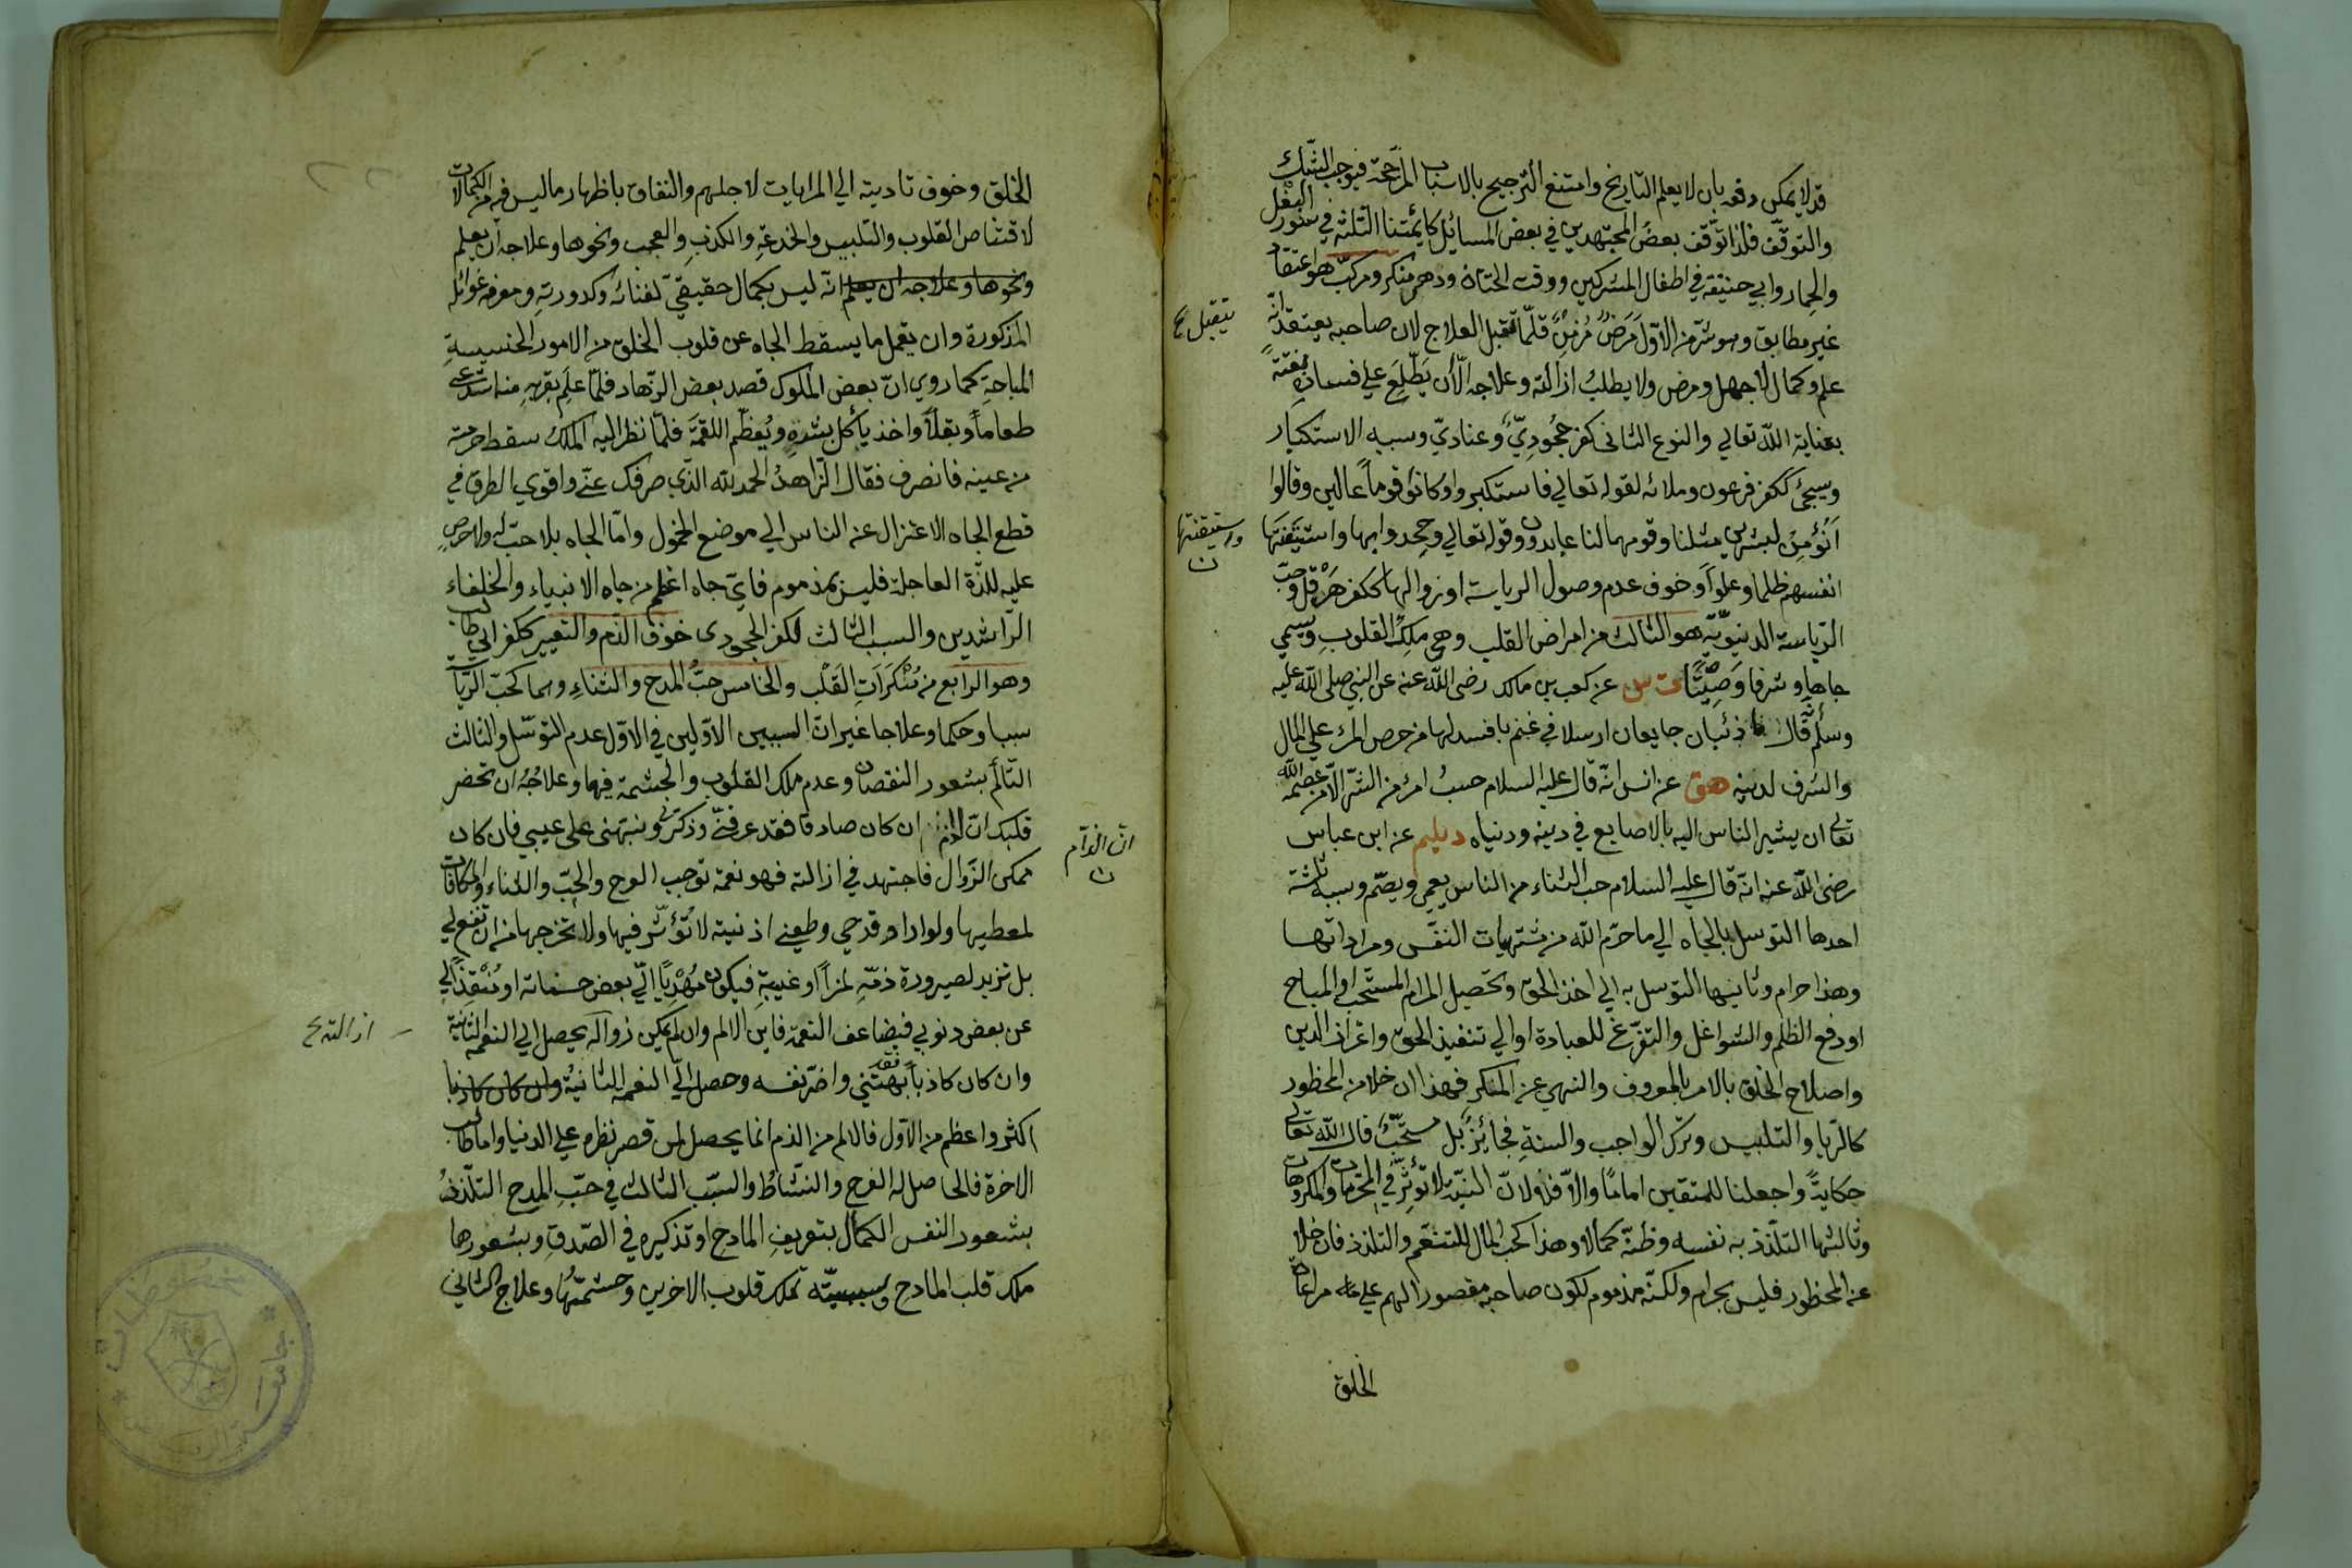 قد لا يمكن دفعه بان لا يعلم التاريخ وامتنع الترجيح بالاسباب المرجحة فيوجب الشك
والتوقف فلذا توقف بعض المجتهدين في بعض المسائل كائمتنا الثلثة في سؤر البغل
والحمار وابي حنيفة في اطفال المشركين ووقت الختان ودهر منكر ومركب هو اعتقاد
غير مطابق وهو شر من الاول مرض مزمن قلما تقبل العلاج لان صاحبه يعتقد انه
يتقبل ع
علم وكمال لا جهل ومرض ولا يطلب ازالته وعلاجه الا ان يطلع على فساده بغتة
بعناية الله تعالي والنوع الثاني كفر جحودي وعنادي وسببه الاستكبار
وسيجئ ككفر فرعون وملائه لقوله تعالي فاستكبروا وكانوا قوما عالين وقالوا
أنؤمن لبشرين مثلنا وقومهما لنا عابدون وقوله تعالي وجحدوا بها واستيقنتها
واستيقنتها ن
انفسهم ظلما وعلوا وخوف عدم وصول الرياسة او زوالها ككفر هرقل وحب
الرياسة الدنيوية هو الثالث من امراض القلب وهي ملك القلوب ويسمي
جاها وشرفا وصيتا ت س عن كعب بن مالك رضى الله عنه عن النبي صلى الله عليه
وسلم انه قال ما ذئبان جايعان ارسلا في غنم بافسد لها من حرص المرء علي المال
والشرف لدينه هق عن انس انه قال عليه السلام حسب امرئ من الشر الا من عصمه الله
تعالي ان يشير الناس اليه بالاصابع في دينه ودنياه ديلم عن ابن عباس
رضى الله عنه انه قال عليه السلام حب الثناء من الناس يعمي ويصم وسببه ثلثة
احدها التوسل بالجاه الي ما حرم الله من مشتهيات النفس ومراداتها
وهذا حرام وثانيها التوسل به الي اخذ الحق وتحصيل المرام المستحب او المباح
او دفع الظلم والشواغل والتفرغ للعبادة او الي تنفيذ الحق واعزاز الدين
واصلاح الخلق بالامر بالمعروف والنهي عن المنكر فهذا ان خلا من المحظور
كالريا والتلبيس وترك الواجب والسنة فجائز بل مستحب قال الله تعالي
حكاية واجعلنا للمتقين اماما والا فلا لان النية لا تؤثر في المحرمات والمكروهات
وثالثها التلذذ به نفسه وظنه كمالا وهذا كحب المال للتنعم والتلذذ فان خلا
عن المحظور فليس بحرام ولكنه مذموم لكون صاحبه مقصور الهم على مراعاة
الخلق
الخلق وخوف تاديته الي المرايات لاجلهم والنفاق باظهار ما ليس فيه من الكمالات
لاقتناص القلوب والتلبيس والخدعة والكذب والعجب ونحوها وعلاجه ان يعلم
ونحوها وعلاجه ان يعلم انه ليس بكمال حقيقي لفنائه وكدورته ومعرفة غوائله
المذكورة وان يعمل ما يسقط الجاه عن قلوب الخلق من الامور الخسيسة
المباحة كما روي ان بعض الملوك قصد بعض الزهاد فلما علم بقربه منه استدعي
طعاما وبقلا واخذ يأكل بشره ويعظم اللقمة فلما نظر اليه الملك سقط حرمته
من عينه فانصرف فقال الزاهد الحمد لله الذي صرفك عني واقوي الطرق في
قطع الجاه الاعتزال عن الناس الي موضع الخمول واما الجاه بلا حب له ولا حرص
عليه للذة العاجلة فليس بمذموم فاي جاه اعظم من جاه الانبياء والخلفاء
الراشدين والسبب الثالث لكفر الجحودى خوف الذم والتعيير ككفر ابي طالب
وهو الرابع من منكرات القلب والخامس حب المدح والثناء وهما كحب الرياسة
سببا وحكما وعلاجا غير ان السببين الاولين في الاول عدم التوسل والثالث
التألم بشعور النقصان وعدم ملك القلوب والحشمة فيها وعلاجه ان تحضر
قلبك ان الذم ان كان صادقا فقد عرفني وذكرني ونبهني على عيبي فان كان
ان الذام ن
ممكن الزوال فاجتهد في ازالته فهو نعمة توجب الفرح والحب والثناء والمكافات
لمعطيها ولو اراد قدحي وطعني اذ نيته لا تؤثر فيها ولا تخرجها من ان تنفع لي
بل تزيد لصيرورة ذمه لمزا او غيبة فيكون مهديا الي بعض حسناته او منقذا لي
عن بعض ذنوبي فيضاعف النعمة فاين الالم وان لم يمكن زواله يحصل الي النعمة الثانية
ازالته ع
وان كان كاذبا فقد بهتني واضر نفسه وحصل الي النعمة الثانية وان كان كاذبا
اكثر واعظم من الاول فالالم من الذم انما يحصل لمن قصر نظره علي الدنيا واما طالب
الاخرة فالحاصل له الفرح والنشاط والسبب الثالث في حب المدح التلذذ
بشعور النفس الكمال بتعريف المادح او تذكيره في الصدق وبشعورها
ملك قلب المادح وسببيته تملك قلوب الاخرين وحشمتها وعلاج الثاني